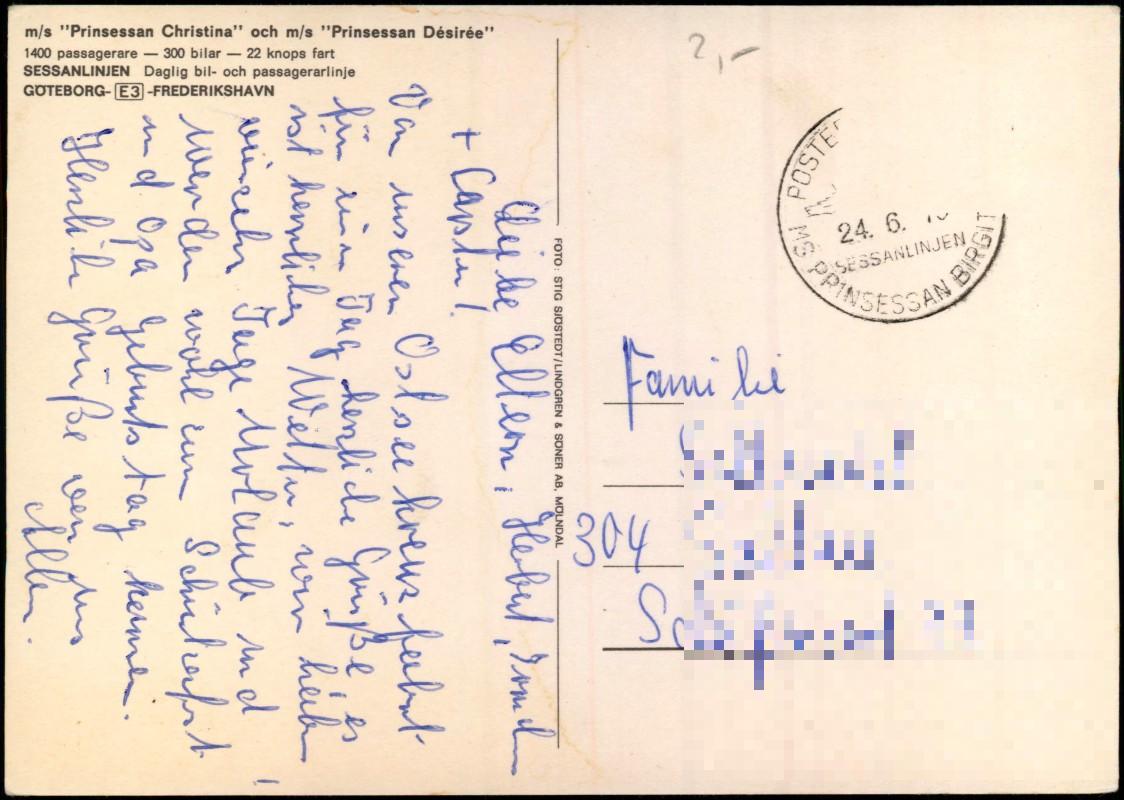 m/s "Prinsessan Christina" och m/s "Prinsessan Désirée"
1400 passagerare — 300 bilar — 22 knops fart
SESSANLINJEN Daglig bil- och passagerarlinje
GÖTEBORG- E3 -FREDERIKSHAVN
Liebe Eltern, Herbert,
+ Carsten!
Von unserer Ostseekreuzfahrt
für einen Tag herzliche Grüße, es
ist herrliches Wetter, wir haben
Tage Urlaub und
werden wohl zum Schützenfest
und Opa Geburtstag kommen.
Herzliche Grüße von uns
Allen.
FOTO: STIG SJÖSTEDT/LINDGREN & SÖNER AB, MÖLNDAL
2,-
POSTED
24. 6.
SESSANLINJEN
MS PRINSESSAN BIRGIT
Familie
304